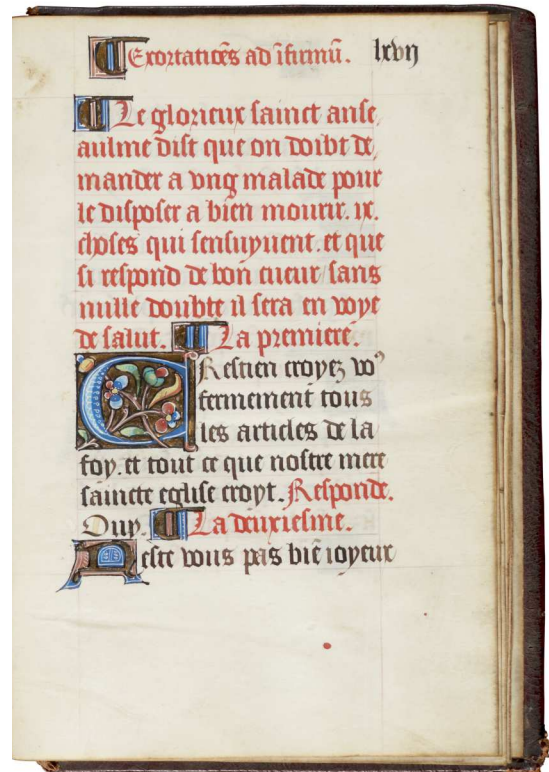 Exortatiões ad ĩfirmũ. lxvij
Le glorieux sainct anse
aulme dist que on doibt de
mander a vng malade pour
le disposer a bien mourir. ix.
choses qui sensuyuent. et que
si respond de bon cueur sans
nulle doubte il sera en voye
de salut. La premiere.
CRestien croyez vo⁹
fermement tous
les articles de la
foy. et tout ce que nostre mere
saincte eglise croyt. Responde.
Ouy. La deuxiesme.
Neste vous pas biē ioyeux